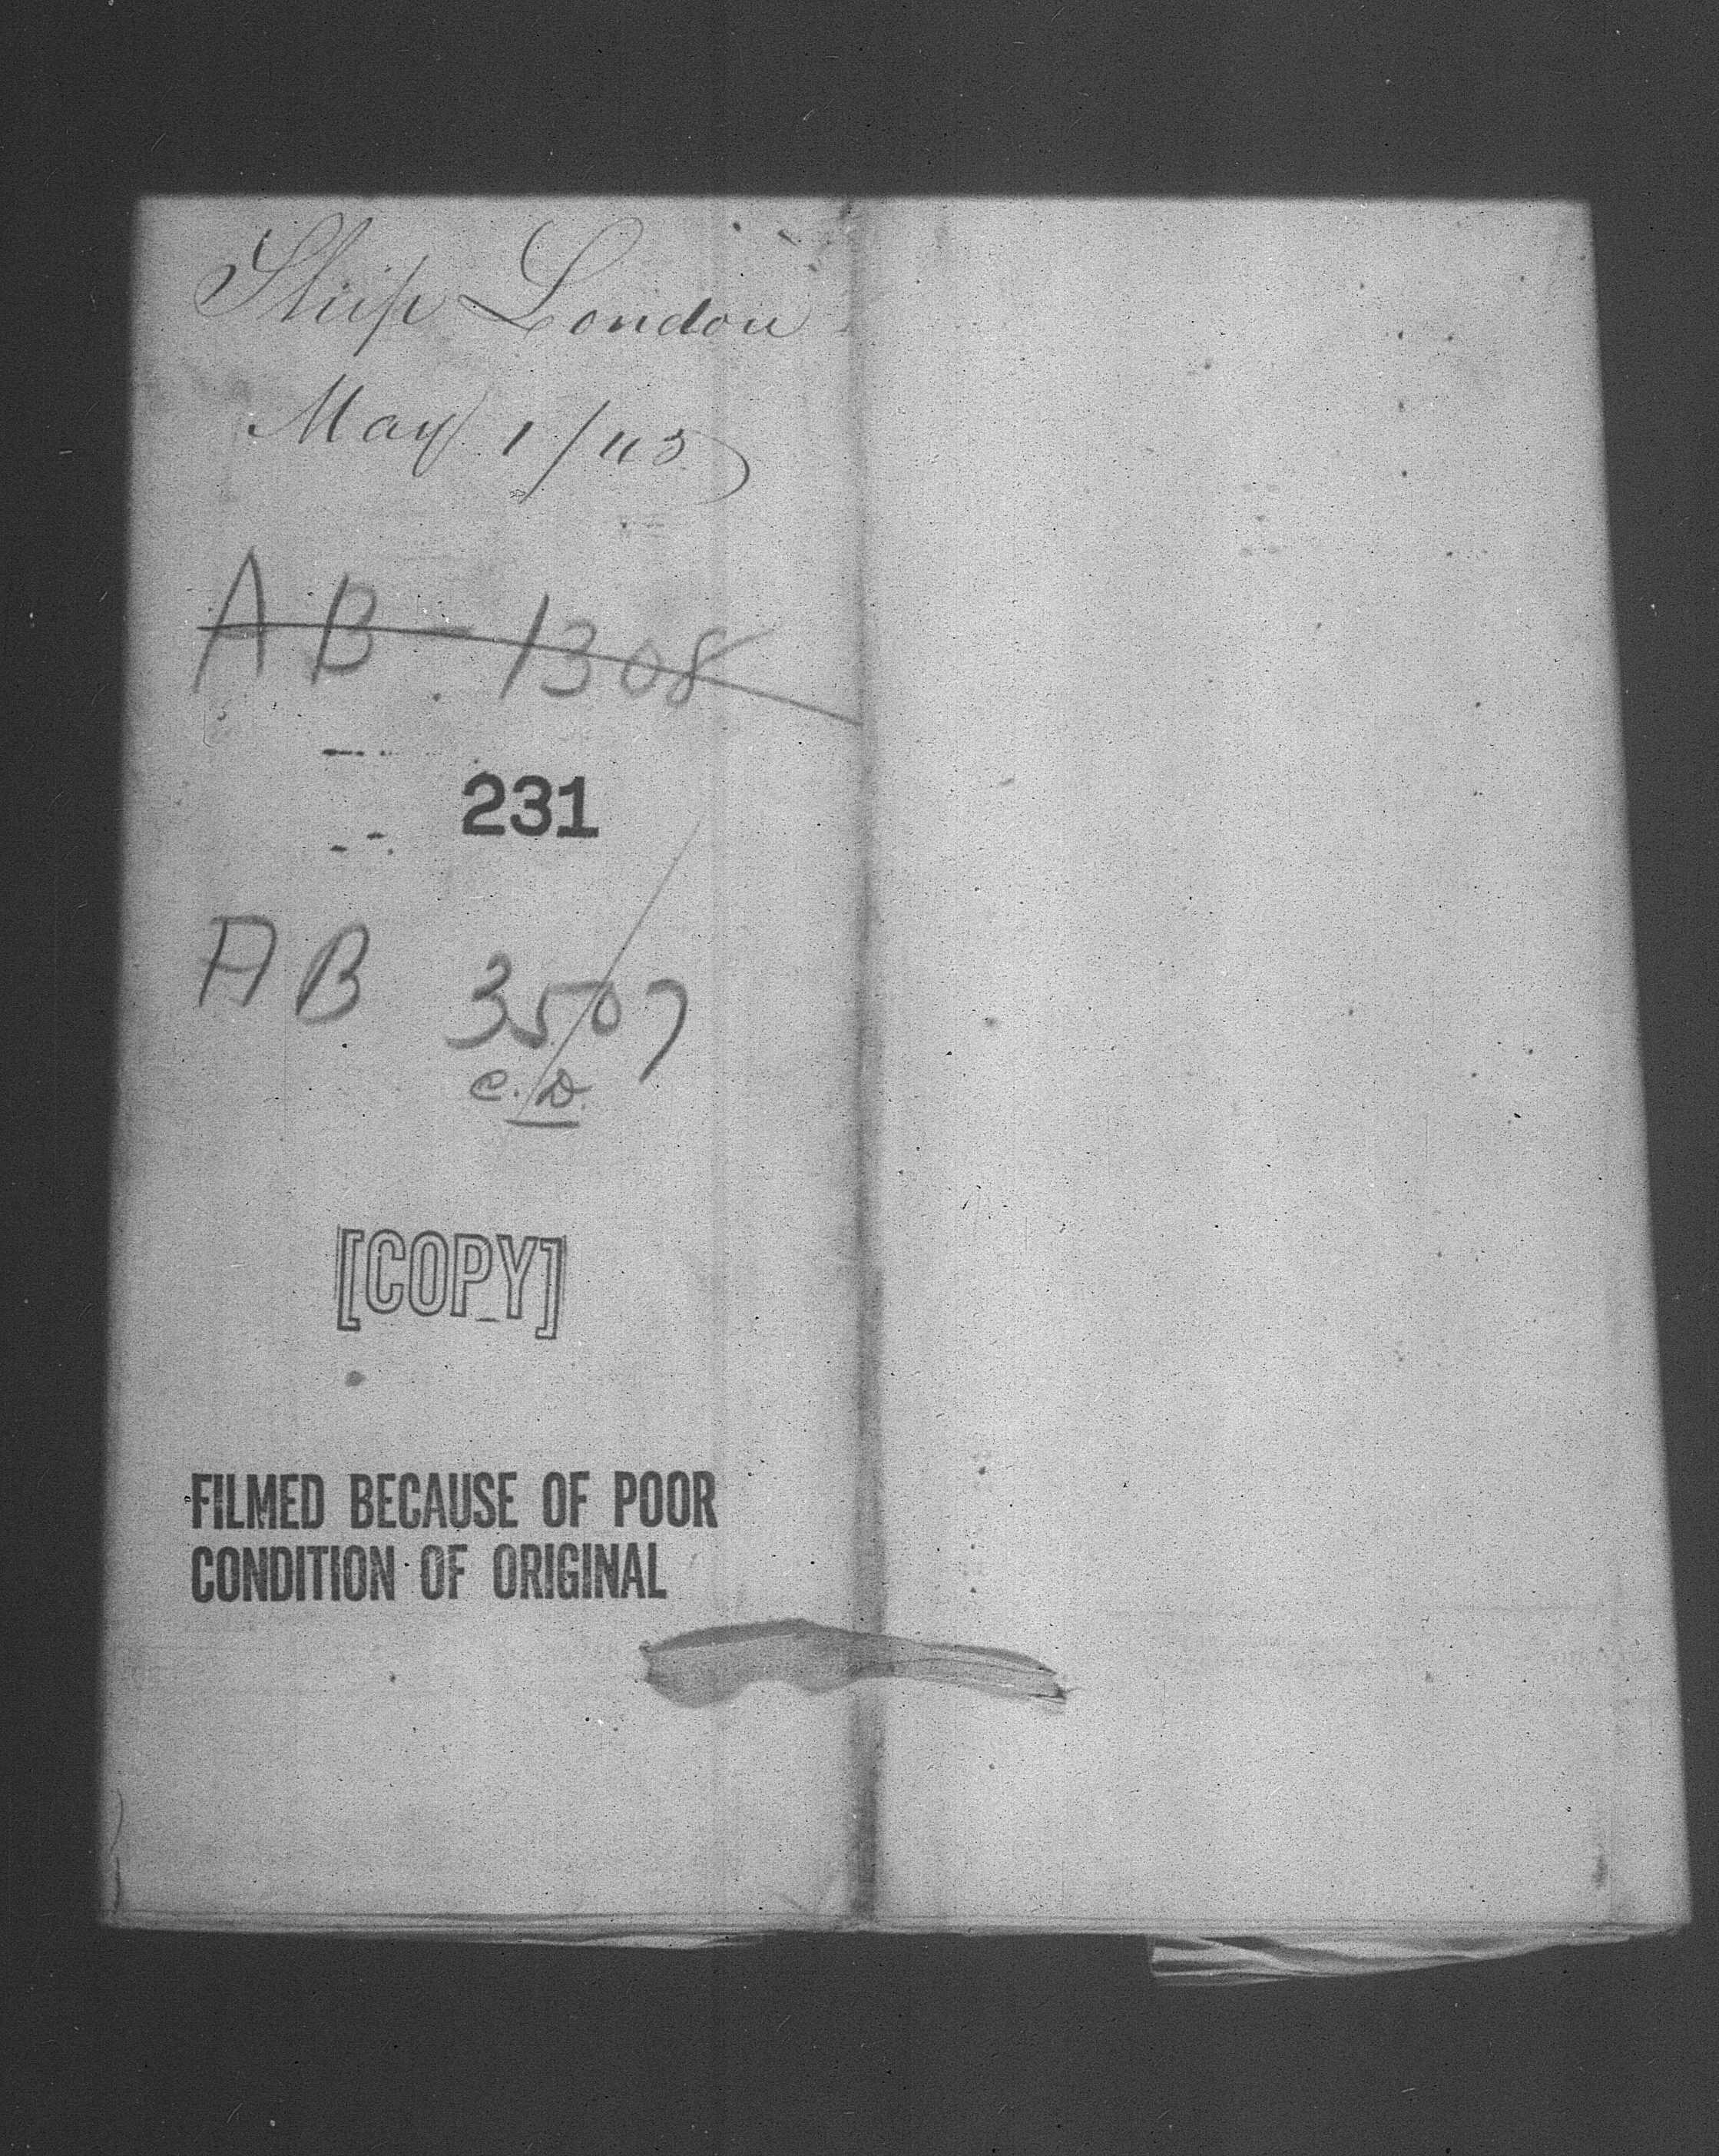 Ship London
May 1/43
AB - 1308
231
AB 3507
C.D.
[COPY]
FILMED BECAUSE OF POOR
CONDITION OF ORIGINAL